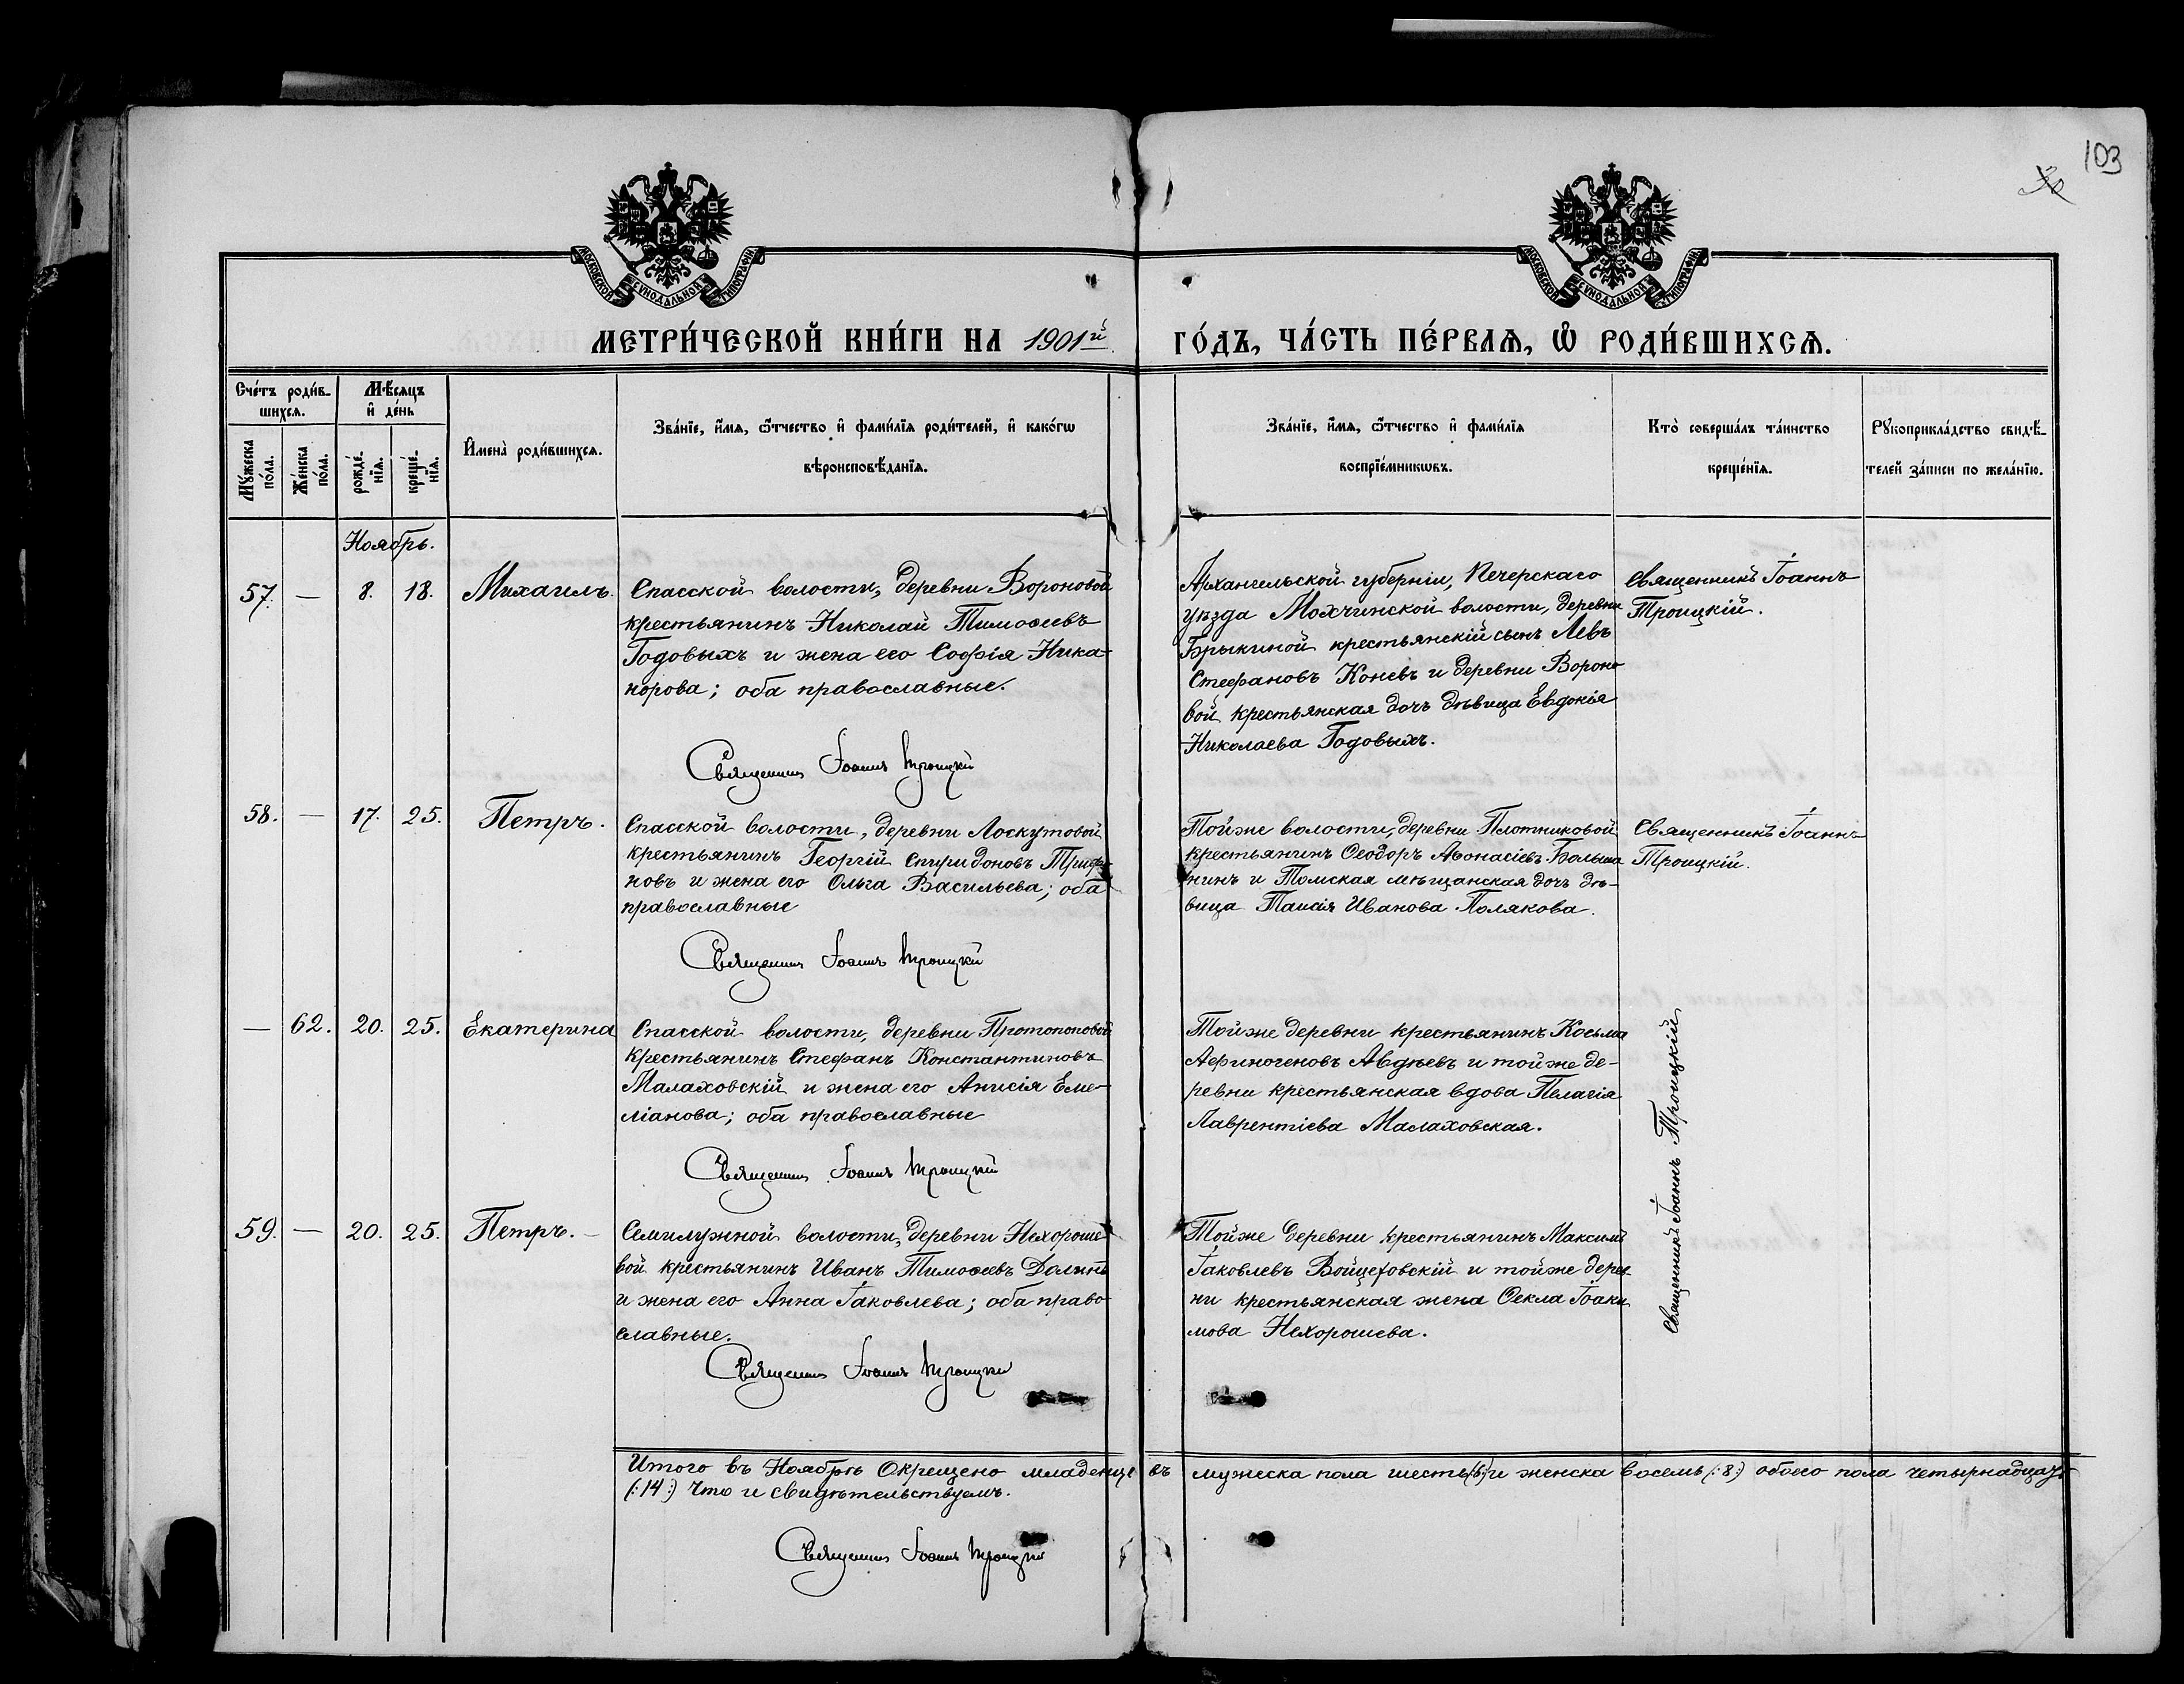 103
30
МОСКОВСКОЙ СѴНОДАЛЬНОЙ ТИПОГРАФІИ
МОСКОВСКОЙ СѴНОДАЛЬНОЙ ТИПОГРАФІИ
МЕТРИ́ЧЕСКОЙ КНИ́ГИ НА 1901й ГО́ДЪ, ЧА́СТЬ ПЕ́РВАѦ, Ѡ҆ РОДИ́ВШИХСѦ.
Сче́тъ роди́в-
шихсѧ.
Мꙋ́жеска
по́ла.
Же́нска
по́ла.
Мѣ́сѧцъ
и҆ де́нь
рожде́-
нїѧ.
креще́-
нїѧ.
И҆мена̀ роди́вшихсѧ.
Зва́нїе, и҆́мѧ, ѻ҆́тчество и҆ фами́лїѧ роди́телей, и҆ како́гѡ
вѣроисповѣ́данїѧ.
Зва́нїе, и҆́мѧ, ѻ҆́тчество и҆ фами́лїѧ
воспрїе́мникѡвъ.
Кто̀ соверша́лъ та́инство
креще́нїѧ.
Рꙋкоприкла́дство свидѣ́-
телей за́писи по жела́нїю.
Ноябрь.
57. — 8. 18. Михаилъ.
Спасской волости, деревни Вороновой
крестьянинъ Николай Тимоѳеевъ
Годовыхъ и жена его Софія Ника-
норова; оба православные.
Священникъ Іоаннъ Троицкій
Архангельской губерніи, Печерскаго
уѣзда Мохчинской волости, деревни
Брыкиной крестьянскій сынъ Левъ
Стефановъ Коневъ и деревни Вороно
вой крестьянская дочь дѣвица Евдокія
Николаева Годовыхъ.
Священникъ Іоаннъ
Троицкій.
58. — 17. 25. Петръ.
Спасской волости, деревни Лоскутовой
крестьянинъ Георгій Спиридоновъ Трифо
новъ и жена его Ольга Васильева; оба
православные
Священникъ Іоаннъ Троицкій
Тойже волости, деревни Плотниковой
крестьянинъ Ѳеодоръ Аѳонасіевъ Больша
нинъ и Томская мѣщанская дочь дѣ-
вица Таисія Иванова Полякова.
Священникъ Іоаннъ
Троицкій.
— 62. 20. 25. Екатерина
Спасской волости, деревни Протопоповой
крестьянинъ Стефанъ Константиновъ
Малаховскій и жена его Анисія Еме-
ліанова; оба православные
Священникъ Іоаннъ Троицкій
Тойже деревни крестьянинъ Косьма
Афиногеновъ Авдѣевъ и тойже де-
ревни крестьянская вдова Пелагія
Лаврентіева Малаховская.
Священникъ Іоаннъ Троицкій
59. — 20. 25. Петръ.
Семилужной волости, деревни Нехороше
вой крестьянинъ Иванъ Тимоѳеевъ
и жена его Анна Іаковлева; оба право
славные.
Священникъ Іоаннъ Троицкій
Тойже деревни крестьянинъ Максимъ
Іаковлевъ Войцеховскій и тойже дерев
ни крестьянская жена Ѳекла Іоаки
мова Нехорошева.
Итого въ Ноябрѣ Окрещено младенцевъ мужеска пола шесть (:6:) и женска восемь (:8:) обоего пола четырнадцать
(:14:) Что и свидѣтельствуемъ.
Священникъ Іоаннъ Троицкій